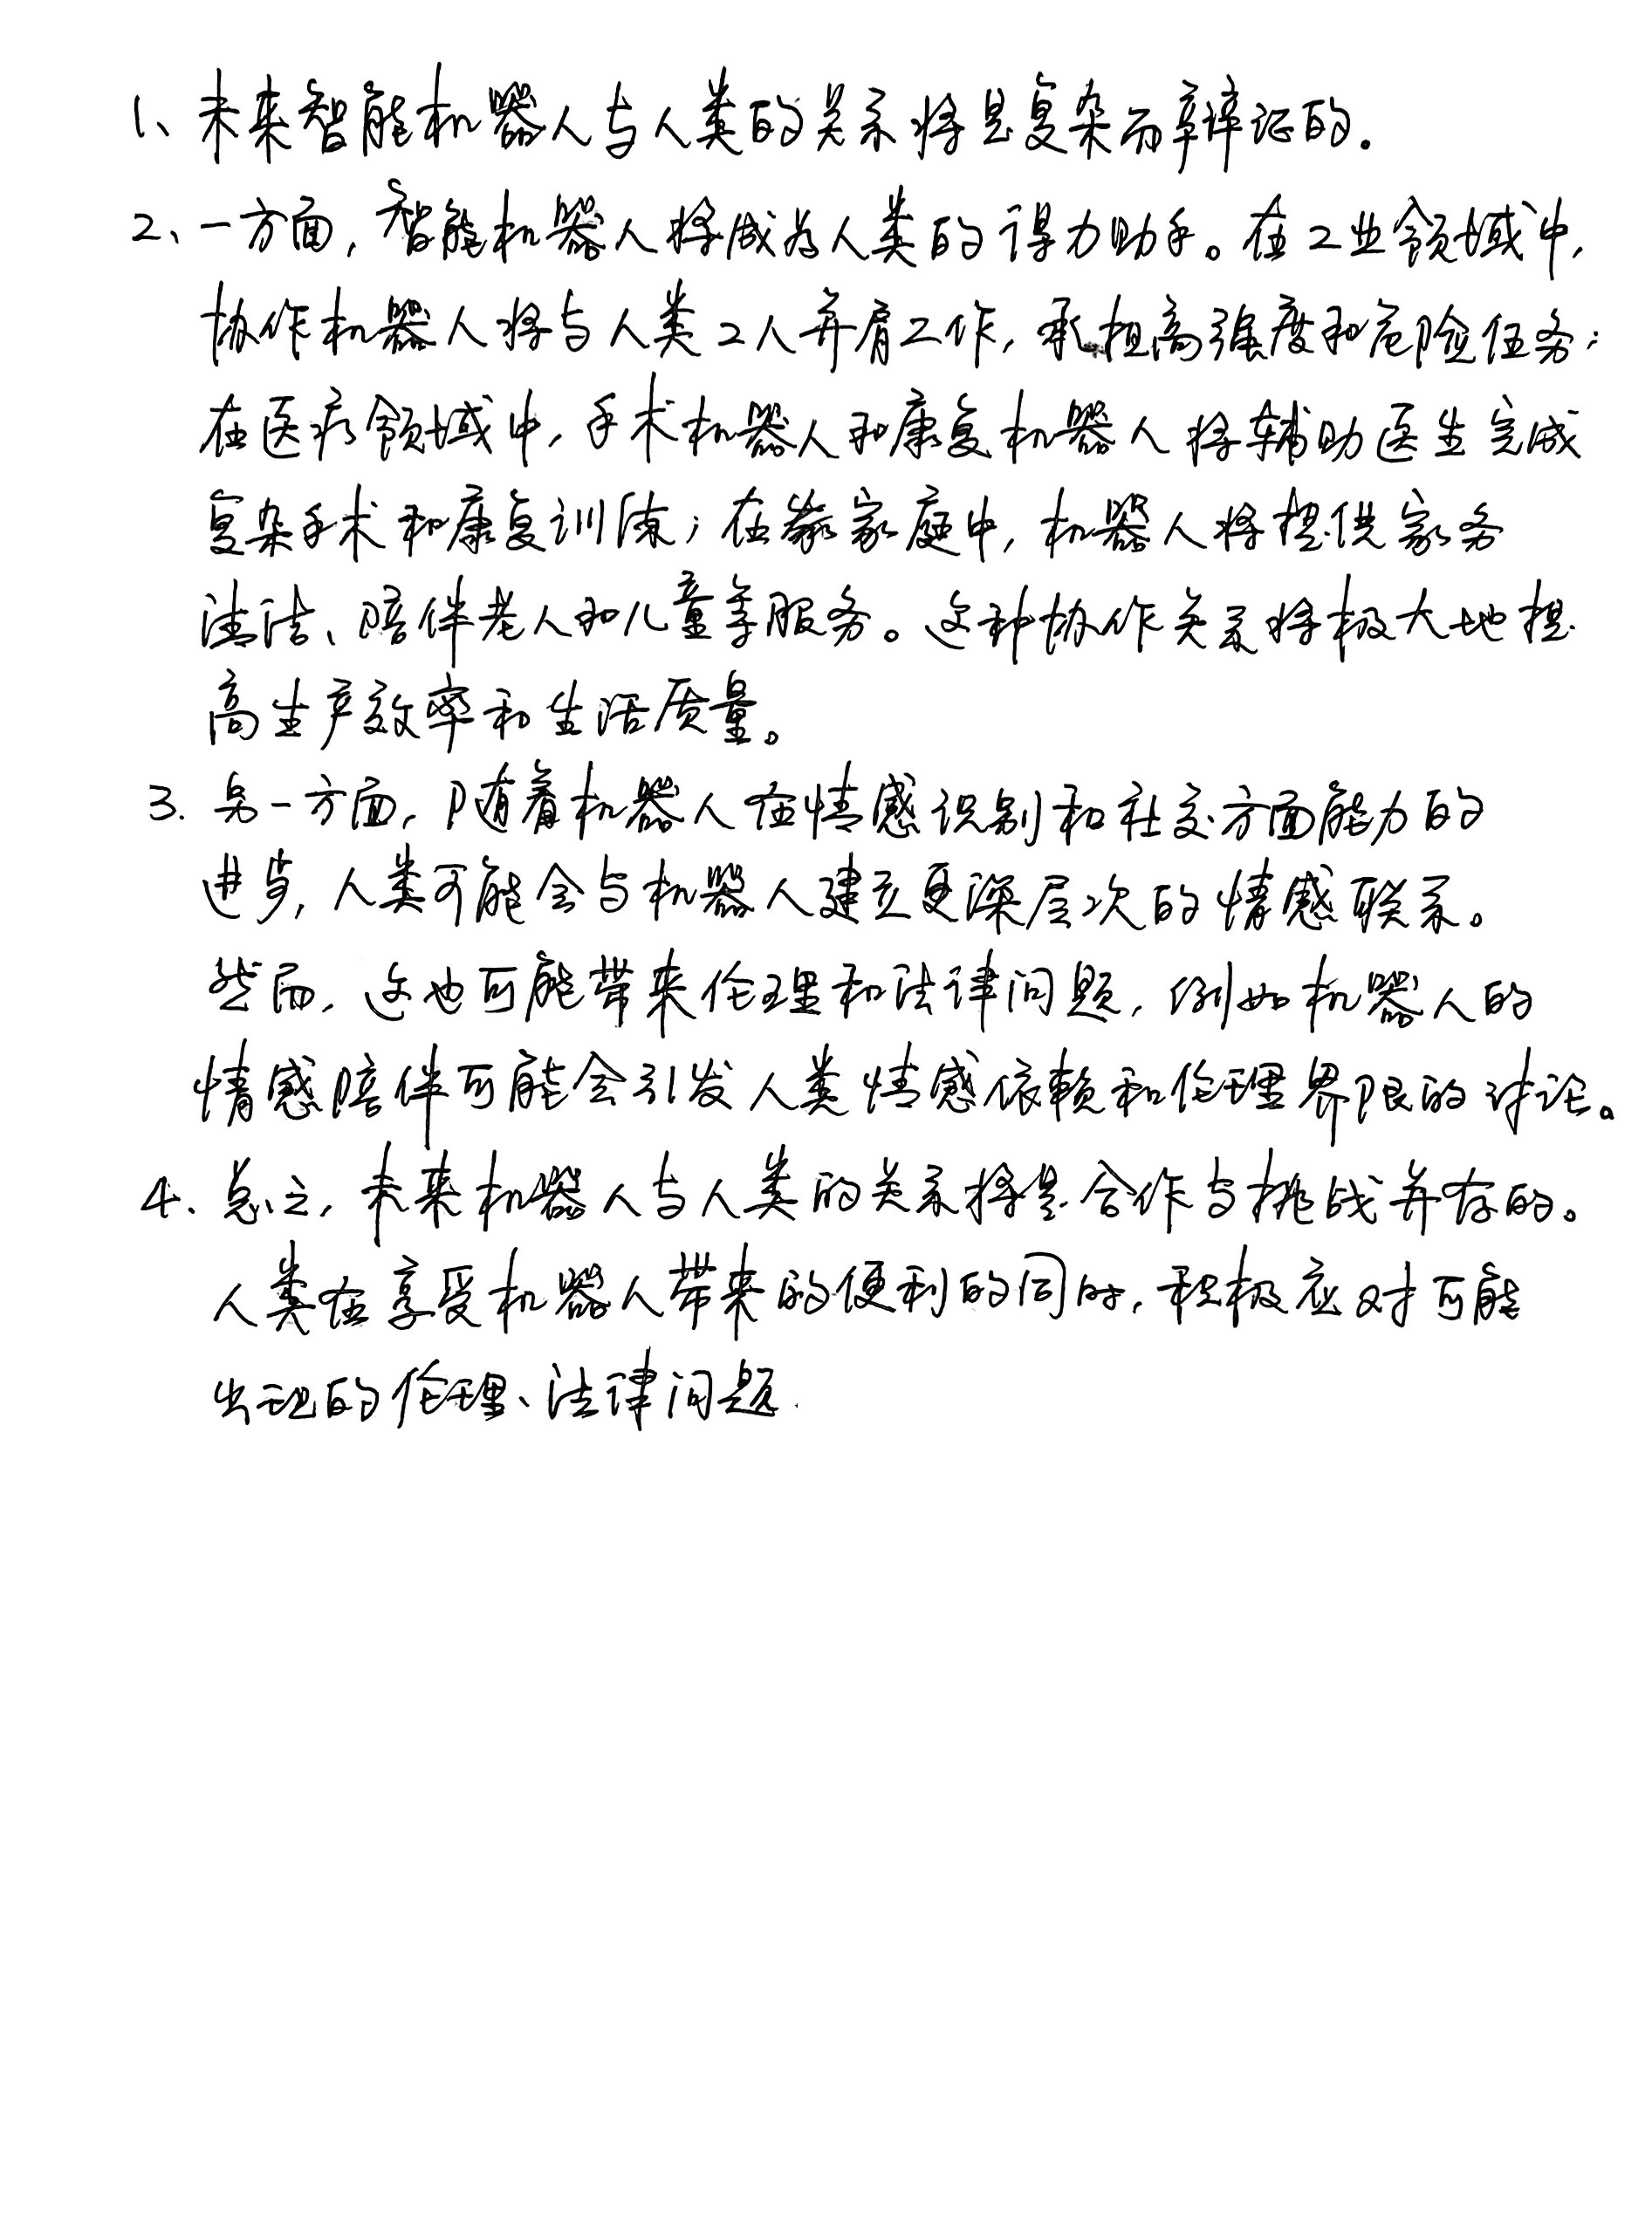 1、未来智能机器人与人类的关系将是复杂而辩证的.
2、一方面,智能机器人将成为人类的得力助手。在工业领域中,
协作机器人将与人类工人并肩工作,承担高强度和危险任务;
在医疗领域中,手术机器人和康复机器人将辅助医生完成
复杂手术和康复训练;在家庭中,机器人将提供家务
清洁、陪伴老人和儿童等服务。这种协作关系将极大地提
高生产效率和生活质量。
3. 另一方面,随着机器人在情感识别和社交方面能力的
进步,人类可能会与机器人建立更深层次的情感联系。
然而,这也可能带来伦理和法律问题,例如机器人的
情感陪伴可能会引发人类情感依赖和伦理界限的讨论。
4、总之,未来机器人与人类的关系将是合作与挑战并存的。
人类在享受机器人带来的便利的同时,积极应对可能
出现的伦理、法律问题.